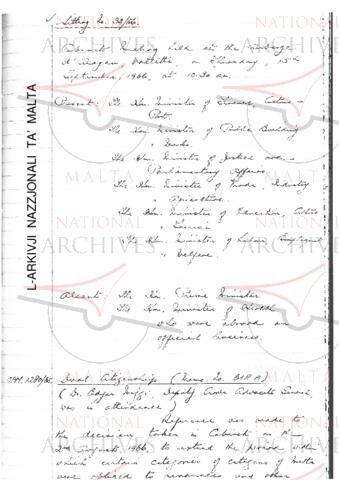 Sitting No. 38/66.
Cabinet Meeting held at the Auberge
d'Aragon, Valletta, on Thursday, 15th
September, 1966, at 10.30 am.
Present: The Hon. Minister of Finance, Customs
Port.
The Hon. Minister of Public Building
& Works.
The Hon. Minister of Justice and
Parliamentary Affairs.
The Hon. Minister of Trade, Industry
& Agriculture.
The Hon. Minister of Education, Culture
& Tourism
The Hon. Minister of Labour, Employment
& Welfare.
Absent: The Hon. Prime Minister
The Hon. Minister of Health
who were abroad on
official business.
Dual Citizenship (Memo. No.
Deputy Crown Advocate General,
was in attendance)
Reference was made to
the decision taken in Cabinet on the
2nd August, 1966, to extend the period within
which certain categories of citizens of Malta
were obliged to renounce any other
L-ARKIVJI NAZZJONALI TA' MALTA
NATIONAL
ARCHIVES
MALTA